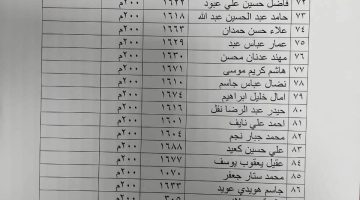 ٧٢ فاضل حسين علي عبود ١٦٢٢ ٢٠٠م
٧٣ حامد عبد الحسين عبد الله ١٦١٨ ٢٠٠م
٧٤ علاء حسن حمدان ١٦٦٣ ٢٠٠م
٧٥ عمار عباس عبد ١٦٢٩ ٢٠٠م
٧٦ مهند عدنان محسن ١٦٣٠ ٢٠٠م
٧٧ هاشم كريم موسى ١٦٧١ ٢٠٠م
٧٨ نضال عباس جاسم ١٦١٥ ٢٠٠م
٧٩ امال خليل ابراهيم ١٦٧٤ ٢٠٠م
٨٠ حيدر عبد الرضا نفل ١٦١٦ ٢٠٠م
٨١ احمد علي نايف ١٦٠١ ٢٠٠م
٨٢ محمد جبار نجم ١٦٠٤ ٢٠٠م
٨٣ علي حسين كعيد ١٦٨٨ ٢٠٠م
٨٤ عقيل يعقوب يوسف ١٦٧٧ ٢٠٠م
٨٥ محمد ستار جعفر ١٠٧٠ ٢٠٠م
٨٦ جاسم هويدي عويد ١٦٣٣ ٢٠٠م
٣٠٥ ٢٠٠م